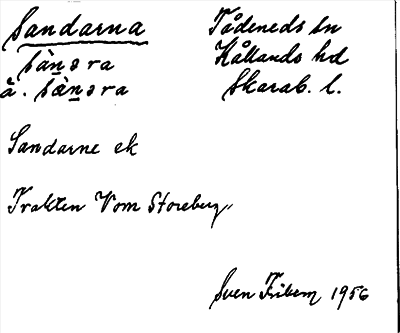 Sandarna
sànəra
ä. sæ̀nəra
Tådeneds sn
Kållands hd
Skarab. l.
Sandarne ek
Trakten Vom Storeberg
Sven Fribem 1956